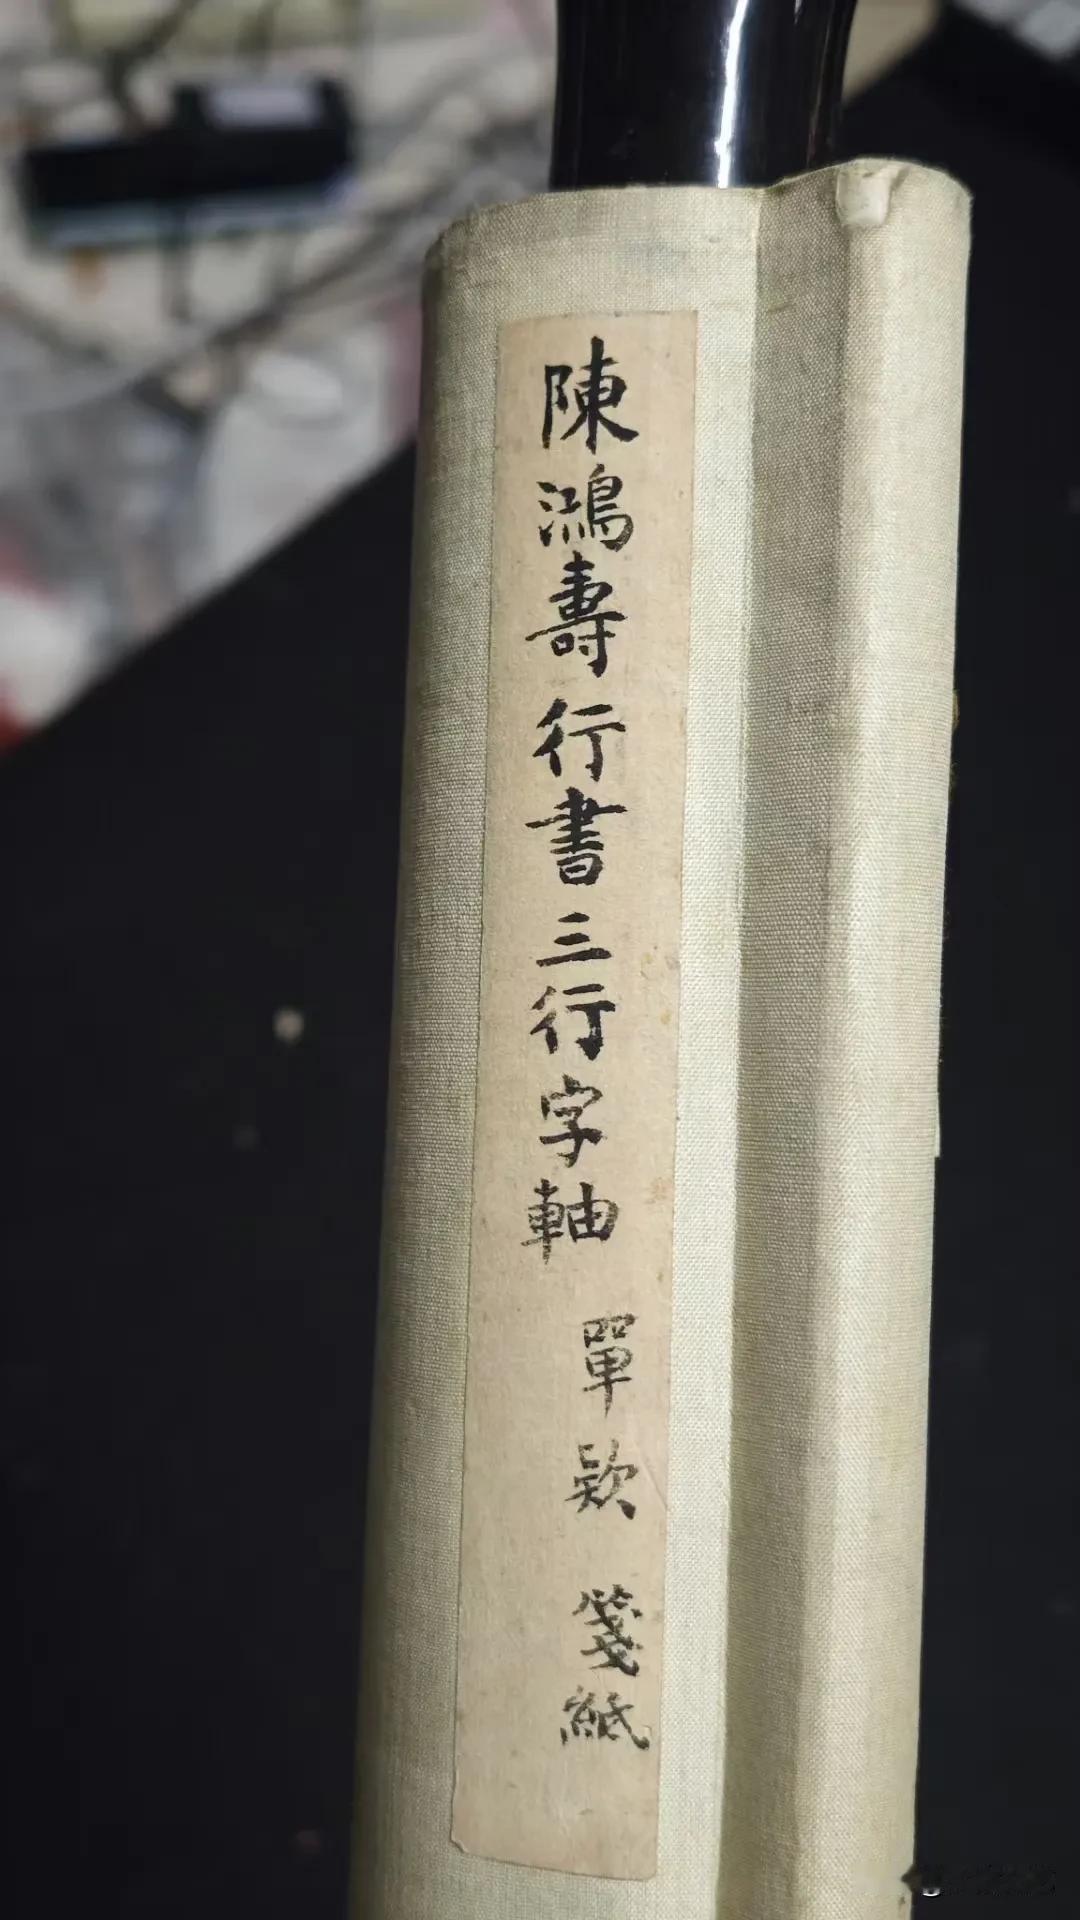 陳鴻壽行書三行字軸
單款 箋紙